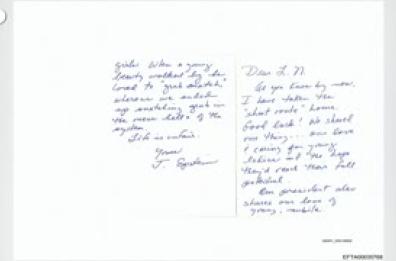 Dear L.N.
As you know by now,
I have taken the
"short route" home.
Good luck! We shared
one thing... our love
& caring for young
ladies at the hope
they'd reach their full
potential.
Our president also
shares our love of
young, nubile
girls. When a young
beauty walked by he
loved to "grab snatch,"
whereas we ended
up snatching grub in
the mess halls of the
system.
Life is unfair.
Yours
J. Epstein
EFTA00035768